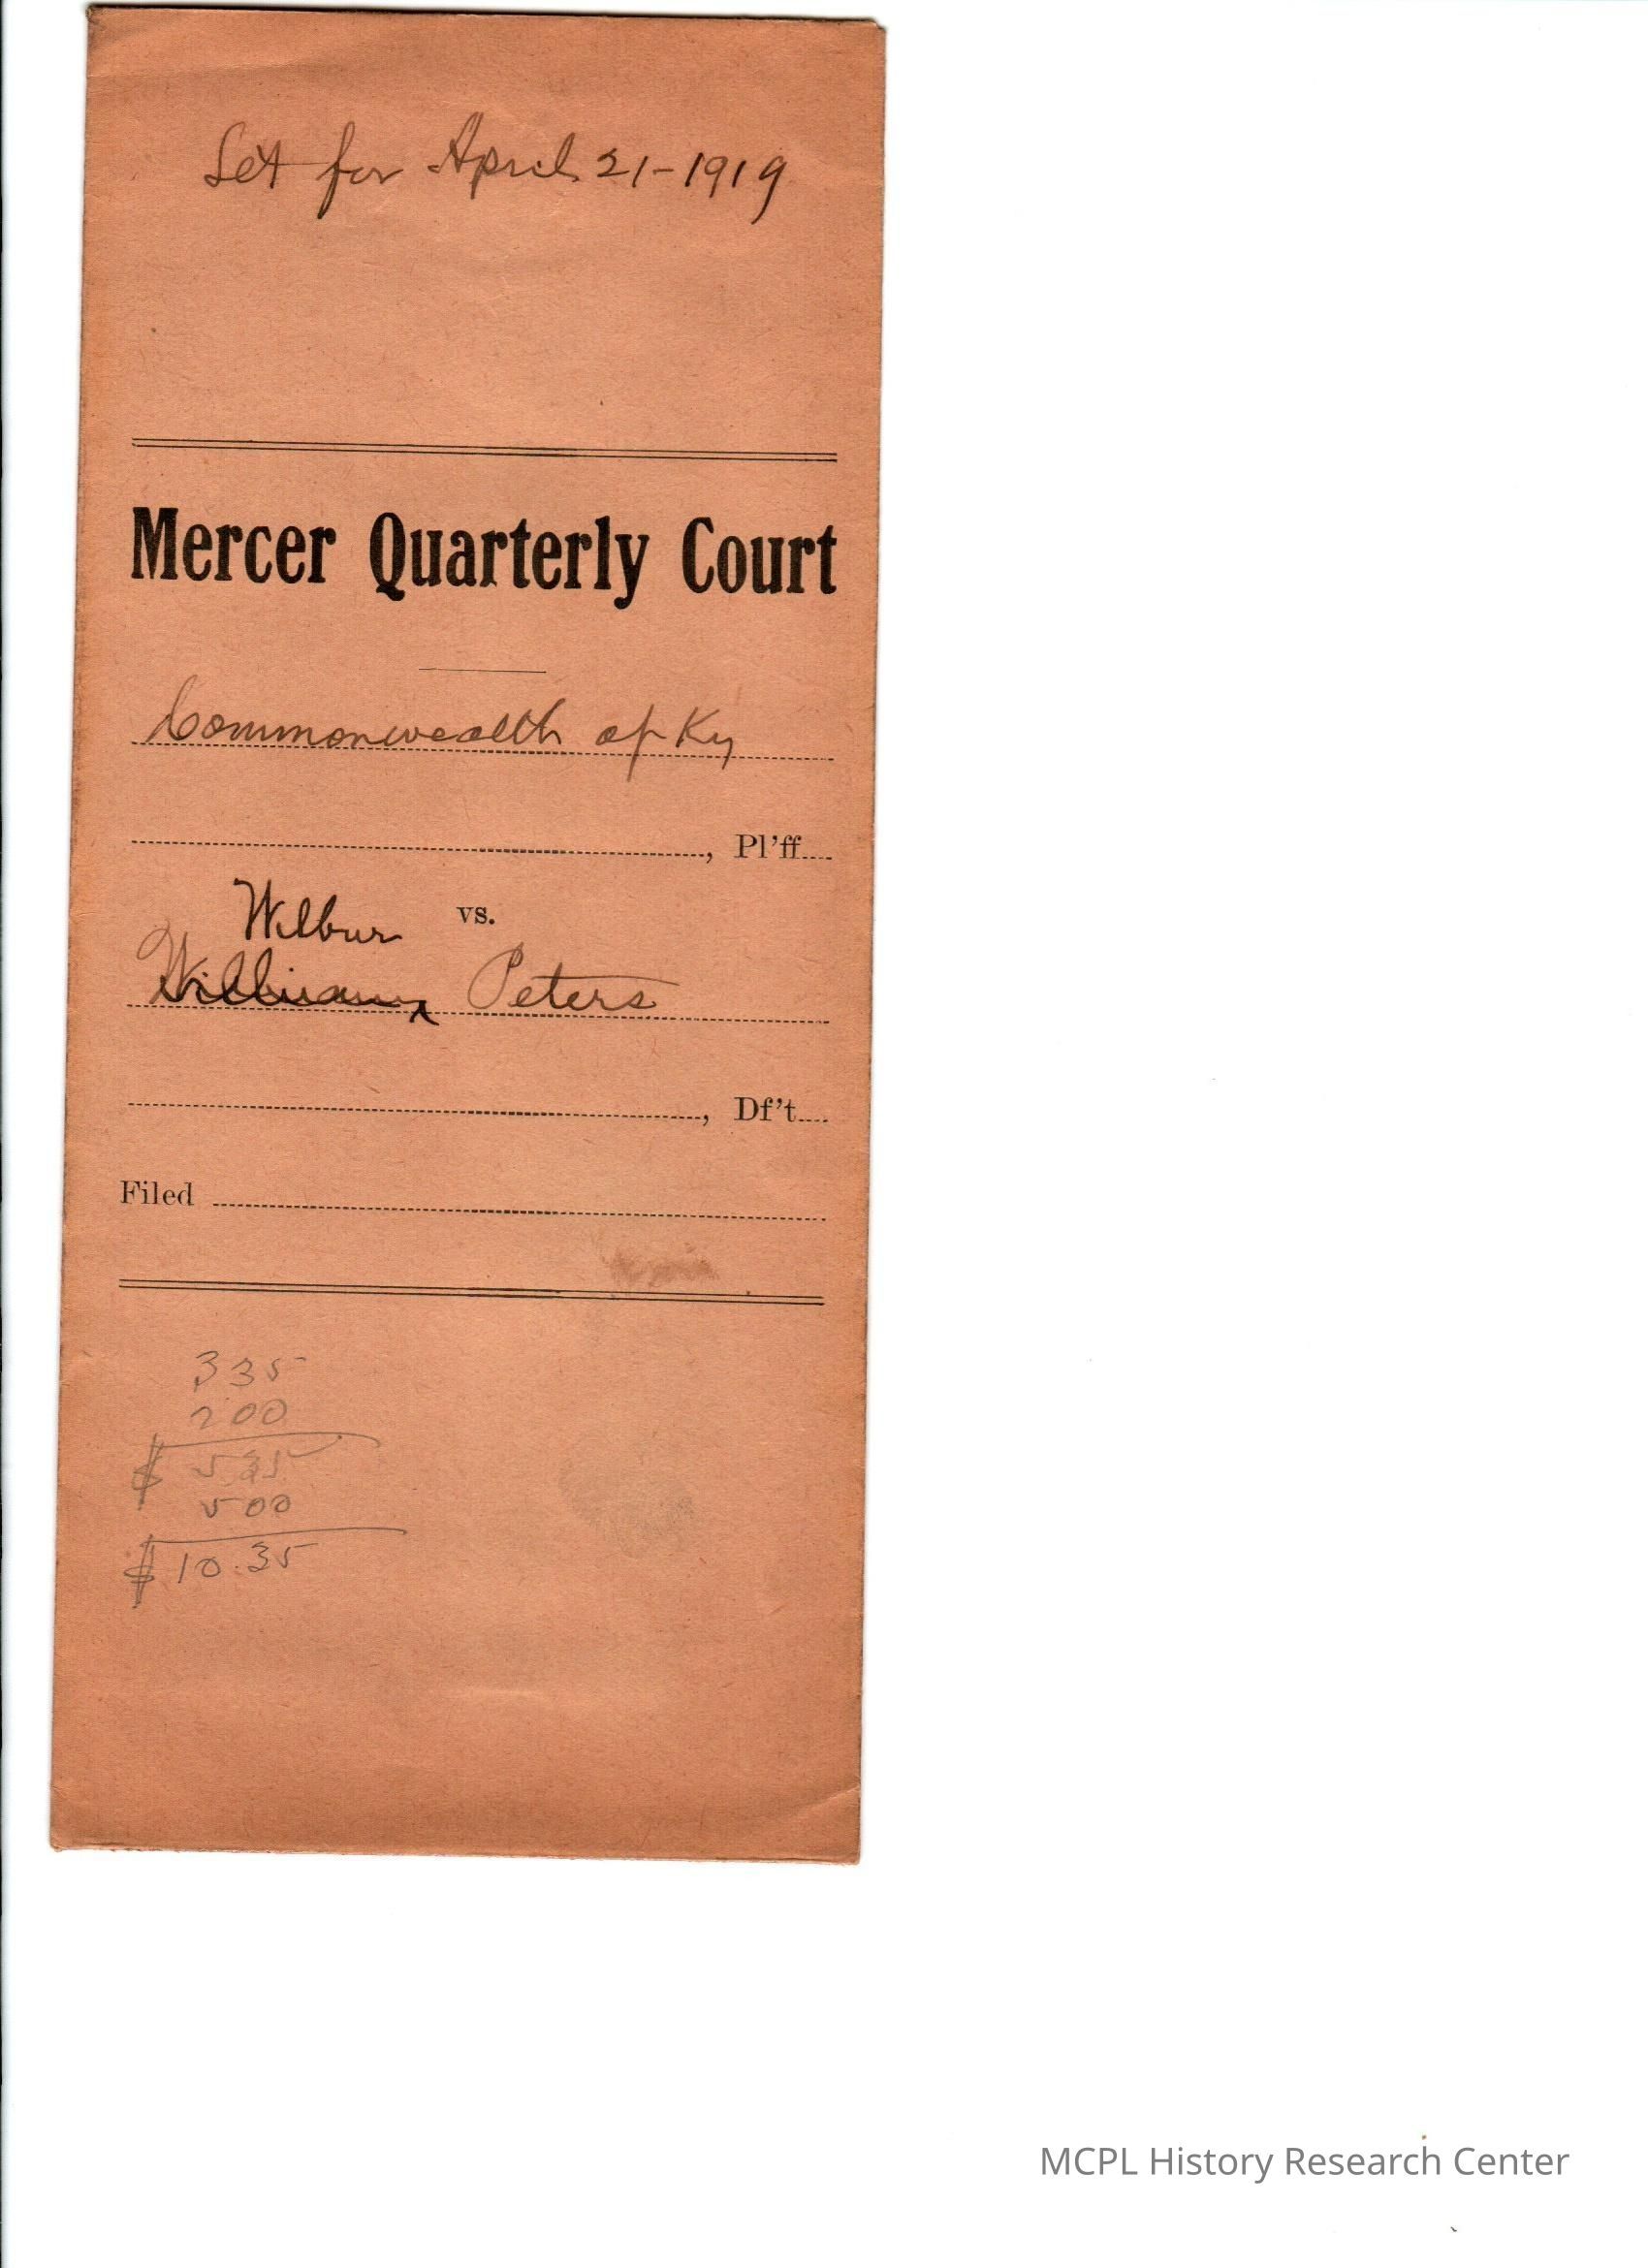 Set for April 21-1919
Mercer Quarterly Court
Commonwealth of Ky
, Pl'ff
Wilbur vs.
William Peters
, Df't
Filed
335
200
$ 535
500
$ 10.35
MCPL History Research Center